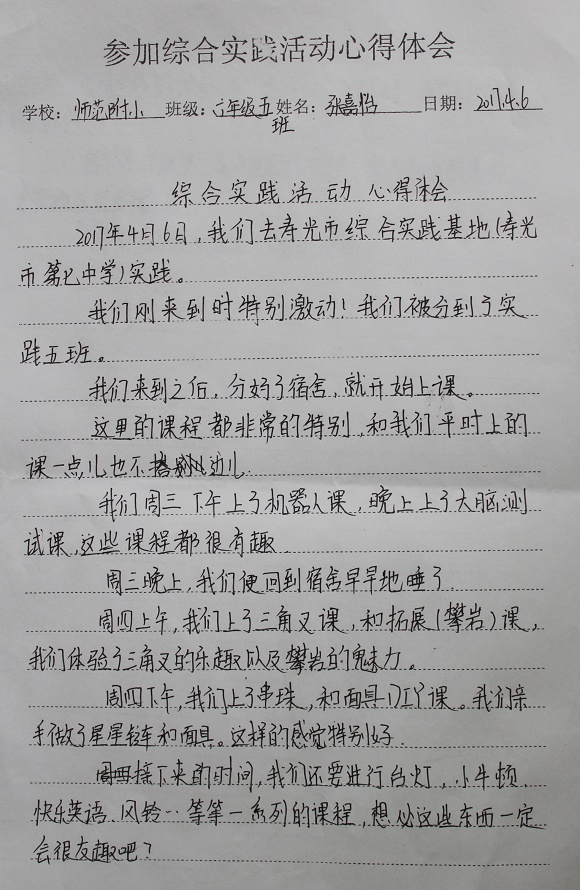 参加综合实践活动心得体会
学校：师范附小 班级：六年级五 姓名：张嘉怡 日期：2017.4.6
班
综合实践活动 心得体会
2017年4月6日，我们去寿光市综合实践基地(寿光
市第七中学)实践。
我们刚来到时特别激动！我们被分到了实
践五班。
我们来到之后，分好了宿舍，就开始上课。
这里的课程都非常的特别，和我们平时上的
课一点儿也不搭边儿.
我们周三下午上了机器人课，晚上上了大脑测
试课，这些课程都很有趣.
周三晚上，我们便回到宿舍早早地睡了.
周四上午，我们上了三角叉课，和拓展(攀岩)课，
我们体验了三角叉的乐趣以及攀岩的魅力。
周四下午，我们上了串珠，和面具DIY课。我们亲
手做了星星链车和面具。这样的感觉特别好.
接下来的时间，我们还要进行台灯，小牛顿.
快乐英语.风铃…等等一系列的课程，想必这些东西一定
会很友趣吧？